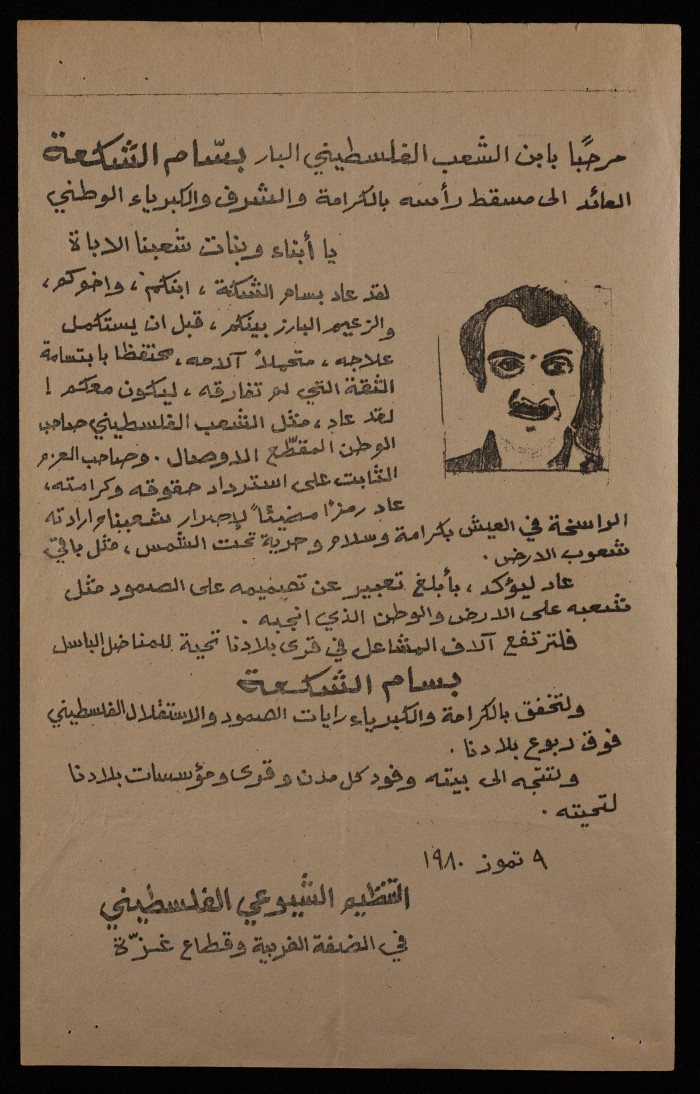 مرحبًا بابن الشعب الفلسطيني البار بسّام الشكعة
العائد الى مسقط رأسه بالكرامة والشرف والكبرياء الوطني
يا أبناء وبنات شعبنا الاباة
لقد عاد بسام الشكعة ، ابنكم ، واخوكم ،
والزعيم البارز بينكم ، قبل ان يستكمل
علاجه ، متحملاً آلامه ، محتفظا بابتسامة
الثقة التي لم تفارقه ، ليكون معكم !
لقد عاد ، مثل الشعب الفلسطيني صاحب
الوطن المقطّع الاوصال . وصاحب العزم
الثابت على استرداد حقوقه وكرامته ،
عاد رمزًا مضيئاً لإصرار شعبنا وارادته
الراسخة في العيش بكرامة وسلام وحرية تحت الشمس ، مثل باقي
شعوب الارض .
عاد ليؤكد ، بأبلغ تعبير عن تصميمه على الصمود مثل
شعبه على الارض والوطن الذي انجبه .
فلترتفع آلاف المشاعل في قرى بلادنا تحية للمناضل الباسل
بسام الشكعة
ولتخفق بالكرامة والكبرياء رايات الصمود والاستقلال الفلسطيني
فوق ربوع بلادنا .
ولتتجه الى بيته وفود كل مدن وقرى ومؤسسات بلادنا
لتحيته .
٩ تموز ١٩٨٠
التنظيم الشيوعي الفلسطيني
في الضفة الغربية وقطاع غزّة